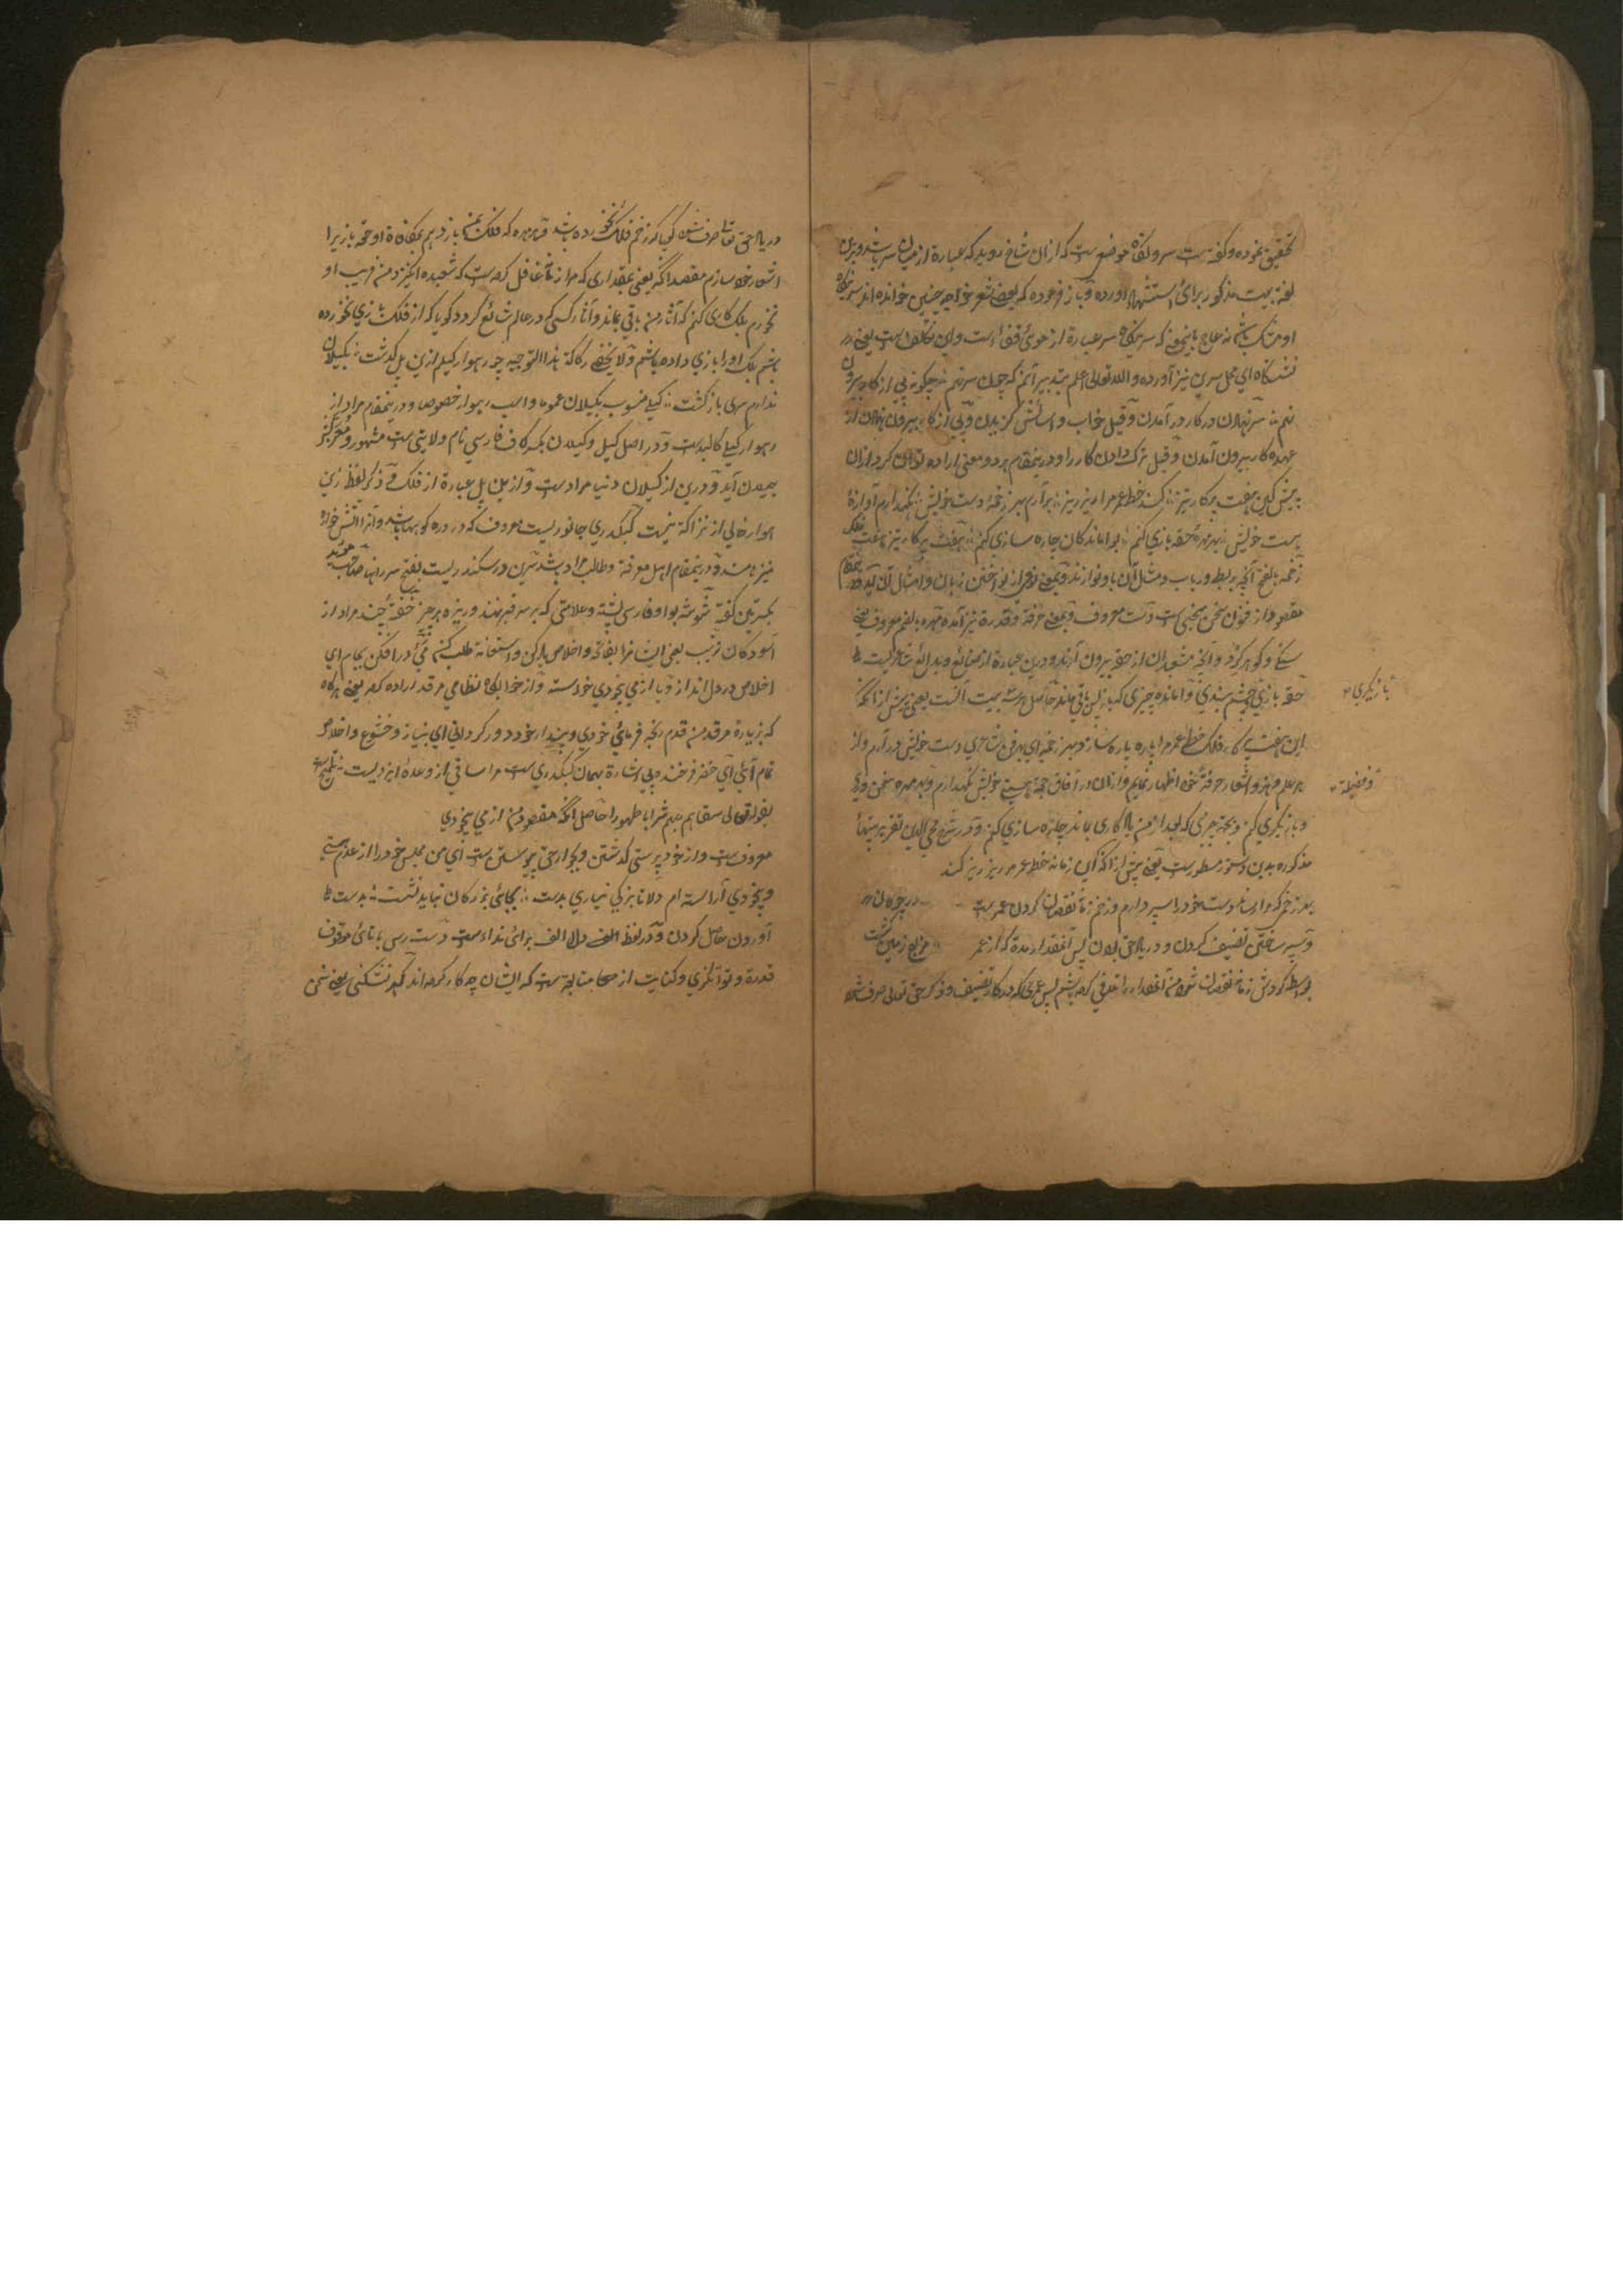 تحقیق نموده و گفته است سرونگاه موضعی است که ازان شاخ روید که عبارة از میان سر باشد و برین
لغة بیت مذکور برای استشهاد آورده و باز فرموده که بعضی شعر خواجه چنین خوانده اند سرینگاه
او مشک باشد نه عاج باینمعنی که سرینگاه سر عبارة از موی قفا است و این تکلف است یعنی
نشستگاه ای محل سرین نیز آورده و الله تعالی اعلم بتدبیر آنم که چون سر نهم چگونه پی از کار بیرون
نهم سر نهادن در کار درآمدن و قیل خواب و آسایش گزیدن و پی از کار بیرون نهادن از
عهده کار بیرون آمدن و قیل ترک دادن کار را و درینمقام هر دو معنی اراده توان کرد ازان
پیش کین هفت پرگار تیز کند خط عمر مرا ریز ریز برآرم بهر زخمه دست خویش نگهدارم آوازه
هست خویش بهر مهره حقه بازی کنم بواماندگان چاره سازی کنم هفت پرگار تیز هفت فلک
زخمه بالفتح آنچه بربط و رباب و مثل آن باو نوازند و بمعنی نوعی از نواختن زبان و امثال آن آید و درینمقام
مقصود از فنون سخن سخنی است دست معروف و بمعنی حرفة و قدرة نیز آمده مهره بالضم معروف یعنی
سنگ و گوهر گرد و آنچه مشعبدان از حقه بیرون آرند و درین عبارة از صنائع و بدائع شعریست
حقه بازی چشم بندی و وامانده چیزی که باز پس باقی ماند حاصل هر سه بیت آنست یعنی پیش از آنکه
این هفت پرگار فلک خط عمر مرا پاره پاره سازد بهر زخمه ای بهر فن شاعری دست خویش درآرم و از
هر علم و هنر اشعار حرفه خود اظهار نمایم و ازان در آفاق جهة هستی خویش نگهدارم و بهر مهره سخن وی
و بازیگری کنم و بجهة چیزی که بعد از من یادگاری بماند چاره سازی کنم و در شرح محیی الدین تقریر بیتها
مذکوره بدین دستور مسطور است یعنی پیش از آنکه این زمانه خط عمر مرا ریز ریز کند
بهر زخم که مرا رساند دست خود را سپر دارم و زخم زمانه نقصان کردن عمر است
و سپر ساختن تصنیف کردن و در یاد حق بودن پس آنمقدار مدة که از عمر
بواسطه گردش زمانه نقصان شود من آنمقدار را تلافی کرده باشم پس عمری که در کار تصنیف و ذکر حق تعالی صرف شود
بازیگری
و فضیلة
در یاد حق تعالی صرف شود گویا که زخم فلک نخورده باشد و بهر مهره که فلک بمن بازد بهم بمکافاة او حقه بازی را
اشعار خود سازم مقصد آنکه یعنی بمقداری که مرا زمانه غافل کرده است که شعبده انگیزد من فریب او
نخورم بلک کاری کنم که آثار من باقی بماند و آثار کسی که در عالم شائع گردد گویا که از فلک بازی نخورده
باشم بلک او را بازی داده باشم ولا یخفی رکاکة هذا التوجیه چو رهوار گیلم ازین پل گذشت بگیلان
ندارم سر بازگشت گیلی منسوب بگیلان عموما و اسب رهوار خصوص و درینمقام مراد از
رهوار گیلی کالبد است و در اصل گیل و گیلان بکسر کاف فارسی نام ولایتی است مشهور و معرب
جیلان آید و درین از گیلان دنیا مراد است و ازین پل عبارة از فلک و ذکر لفظ زین
هوار خالی از نزاکة نیست کبک دری جانوریست معروف که در دره کوهها باشد و آنرا آتش خوار
نیز نامند و درینمقام اهل معرفة و طالب مراد باشد سرین در سکندریست بفتح سر رانها صاحب مؤید
بکسرتین گفته شوشه بواو فارسی پشته و علامتی که بر سر قبر نهند و ریزه هر چیز خفته چند مراد از
آسودگان ترتیب یعنی ایشانرا بفاتحه و اخلاص یاد کن و استعانة طلب کنی می درافکن بجام ای
اخلاص در دل انداز و یا از می بیخودی خواسته و از خوابگاه نظامی مرقد اراده کرده یعنی هرگاه
که بزیارة مرقد من قدم رنجه فرمائی خودی و پندار خود دور گردانی ای بنیاز و خشوع و اخلاص
تمام آئی ای خضر فرخنده پی اشارة بهمان کبک دری است مرا ساقی از وعده ایزدیست
بقوله تعالی سقاهم ربهم شرابا طهورا حاصل آنکه مقصود من از می بیخودی
معروف است و از خودپرستی گذشتن و بکار حق پیوستن است ای من مجلس خود را از عدم هستی
و بیخودی آراسته ام دلا تا بزرگی نیاری بدست بجای بزرگان نباید نشست بدست
آوردن حاصل کردن و در لفظ دلا الف برای نداءست دست رسی با تای موقوف
قدرة و توانگری و کنایت از صحا متابعة است که ایشان چه کار کرده اند گهر نشکنی یعنی سخن